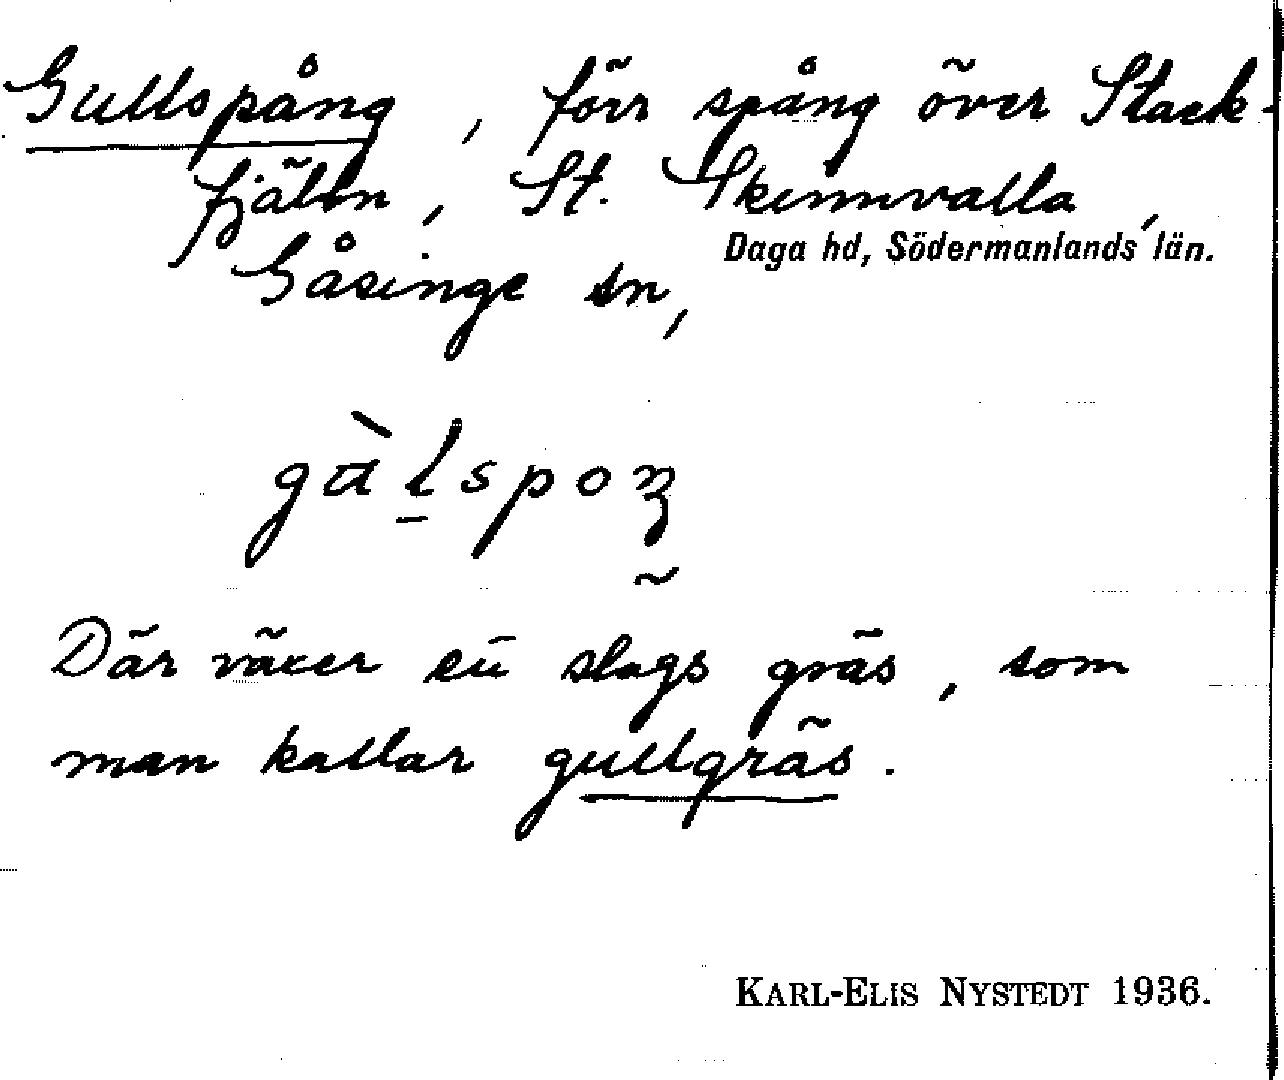 Gullspång, förr spång över Stack-
fjälln, St. Skennvalla,
Daga hd, Södermanlands län.
Gåsinge sn,
Där växer en slags gräs, som
man kallar gullgräs.
KARL-ELIS NYSTEDT 1936.